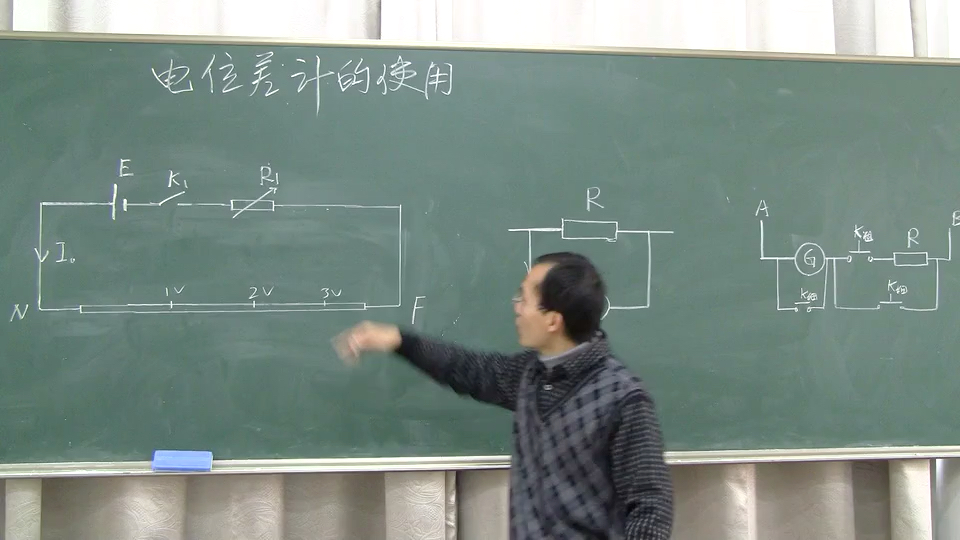 电位差计的使用
E
K₁
R₁
I₀
1V
2V
3V
N
F
R
A
B
G
K粗
R
K细